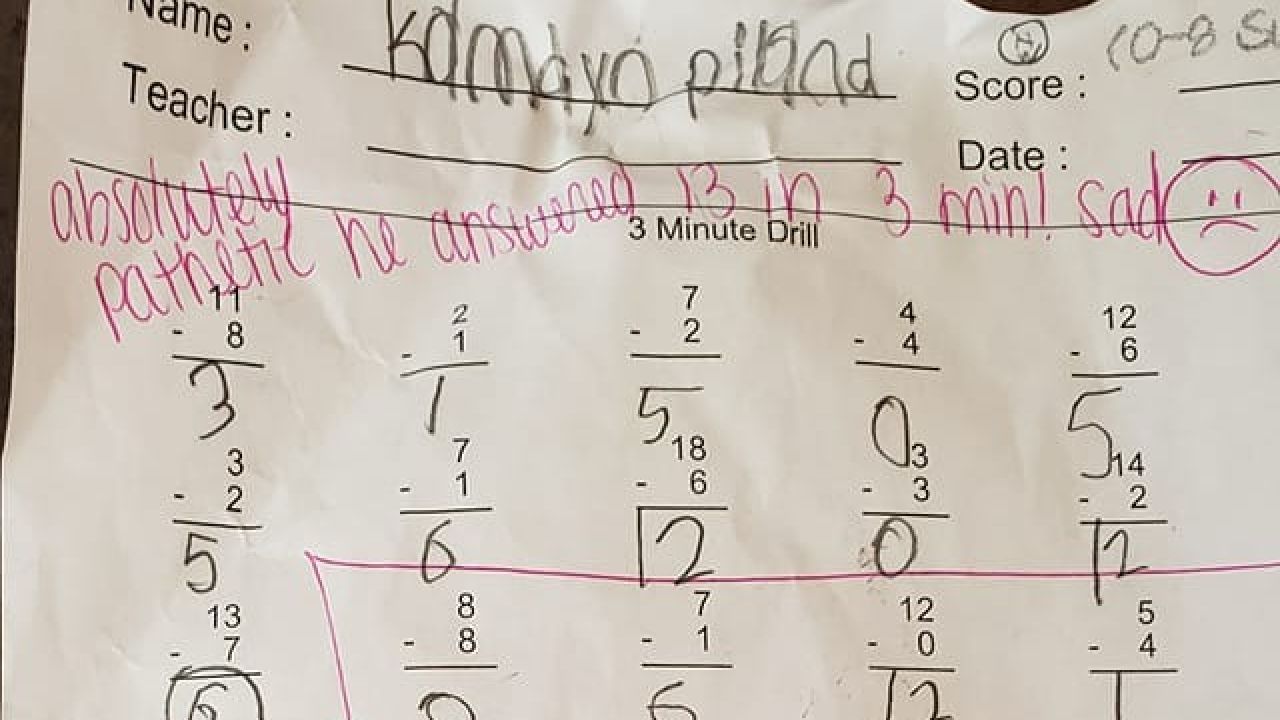 Name : Kamdyn piland
10-8
Score :
Teacher :
Date :
absolutely
pathetic he answered 13 in 3 min! sad
3 Minute Drill
11 2 7 4 12
- 8 - 1 - 2 - 4 - 6
3 1 5 0 5
3 7 18 3 14
- 2 - 1 - 6 - 3 - 2
5 6 12 0 12
13 8 7 12 5
- 7 - 8 - 1 - 0 - 4
6 0 6 12 1